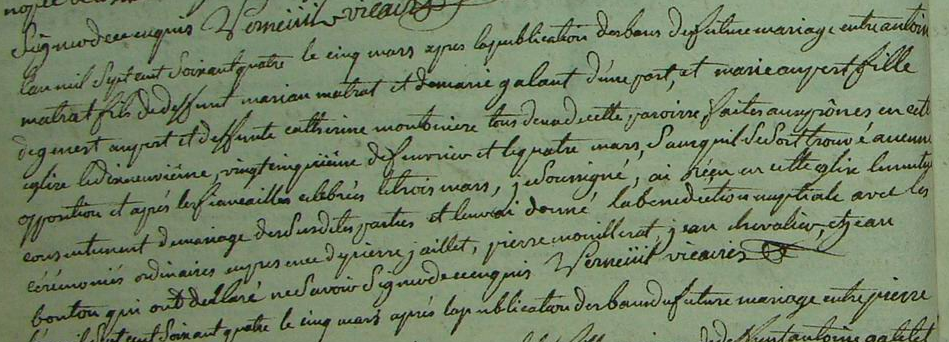 signer de ce enquis Verneüil vicaire
L'an mil sept cent soixant quatre le cinq mars apres la publication des bans du futur mariage entre antoin
matrat fils de deffunt marian matrat et de marie galant d'une part, et marie aupert fille
de genest aupert et deffunte catherine montoniere tous deux de cette paroisse, faites aux prônes en cette
eglise le dixneuvième, vingt cinquième de fevrier et le quatre mars, sans qu'il se soit trouvé aucune
opposition et après les fiancailles celebrés le trois mars, je soussigné, ai reçu en cette eglise le mutuel
consentement de mariage des susdites parties et leur ai donné la benediction nuptiale avec les
cérémonies ordinaires en presence de pierre jaillet, pierre mouillerat, jean chevalier, et jean
bouton qui ont déclaré ne savoir signer de ce enquis Verneüil vicaire
sept cent soixant quatre le cinq mars après la publication des bans du futur mariage entre pierre
de deffunt antoine